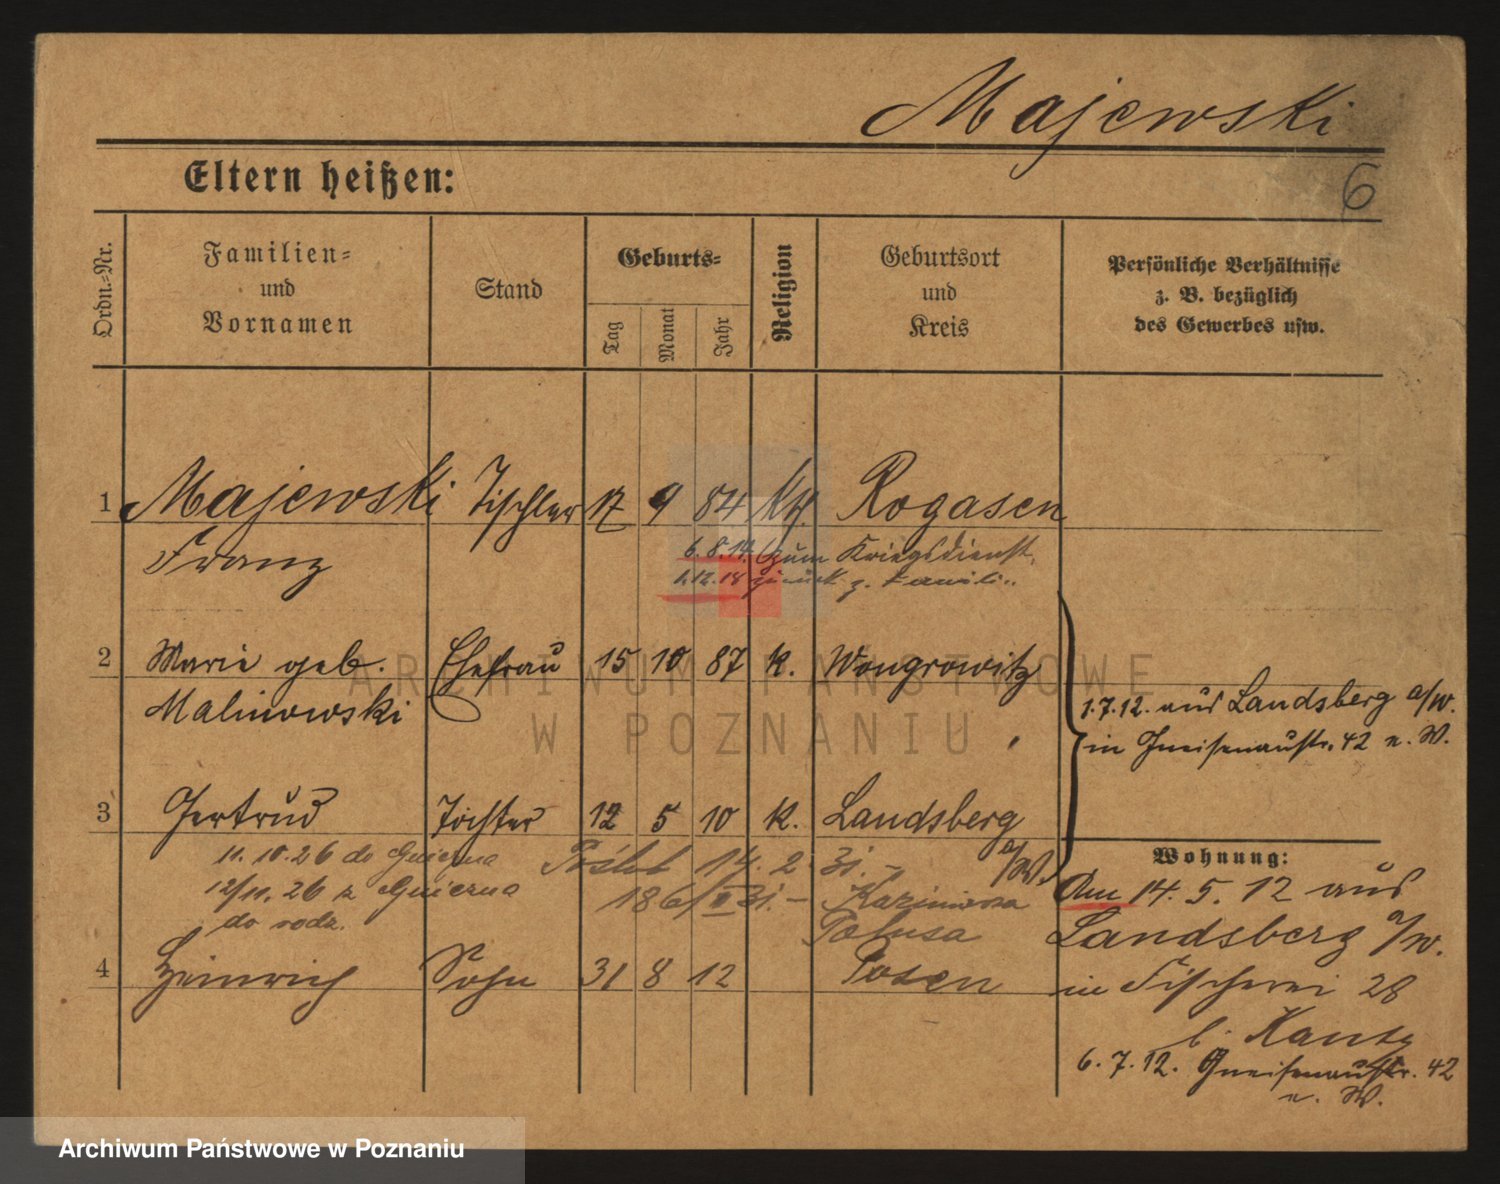 Majewski
Eltern heißen:
6
Ordn.-Nr.
Familien- und Vornamen
Stand
Geburts-
Tag
Monat
Jahr
Religion
Geburtsort und Kreis
Persönliche Verhältnisse z. B. bezüglich des Gewerbes usw.
1 Majewski Tischler 17 9 84 Kth. Rogasen
Franz
6.8.14. zum Kriegsdienst.
1.12.18 zurück z. Famili..
2 Marie geb. Ehefrau 15 10 87 k. Wongrowitz
Malinowski
1.7.12. aus Landsberg a/W.
in Gneisenaustr. 42 n. W.
3 Gertrud Tochter 12 5 10 k. Landsberg
a/W.
11.10.26 do Gniezna
14. 2. 31. –
12/11. 26 z Gniezna
186/II 31. – Kazimierza
do rodz.
4 Heinrich Sohn 31 8 12 Posen
Wohnung:
Am 14. 5. 12 aus
Landsberg a/W.
in Fischerei 28
b. Kantz
6.7.12. Gneisenaustr. 42
n. W.
ARCHIWUM PAŃSTWOWE
W POZNANIU
Archiwum Państwowe w Poznaniu